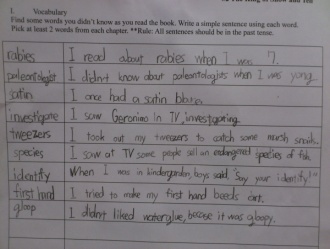 I. Vocabulary
Find some words you didn't know as you read the book. Write a simple sentence using each word.
Pick at least 2 words from each chapter. **Rule: All sentences should be in the past tense.
rabies I read about rabies when I was 7.
paleontologist I didn't know about paleontologists when I was yong
satin I once had a satin
investigate I saw Geronimo in TV, investigating.
tweezers I took out my tweezers to catch some marsh snails.
species I saw at TV some people sell an endangered species of fish.
identify When I was in kindergarden, boys said, "Say your identify!"
first hand I tried to make my first hand beeds art.
gloop I didn't liked waterglue, becose it was gloopy.